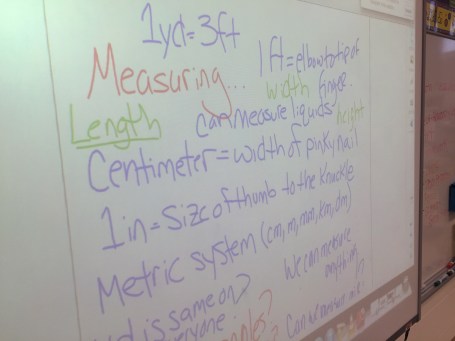 1yd=3ft
1 ft=elbow to tip of
Measuring...
width finger.
Length can measure liquids height
Centimeter=width of pinky nail
1in=Size of thumb to the knuckle
Metric system (cm, m, mm, km, dm)
We can measure
anything
is same on
everyone
Can we measure